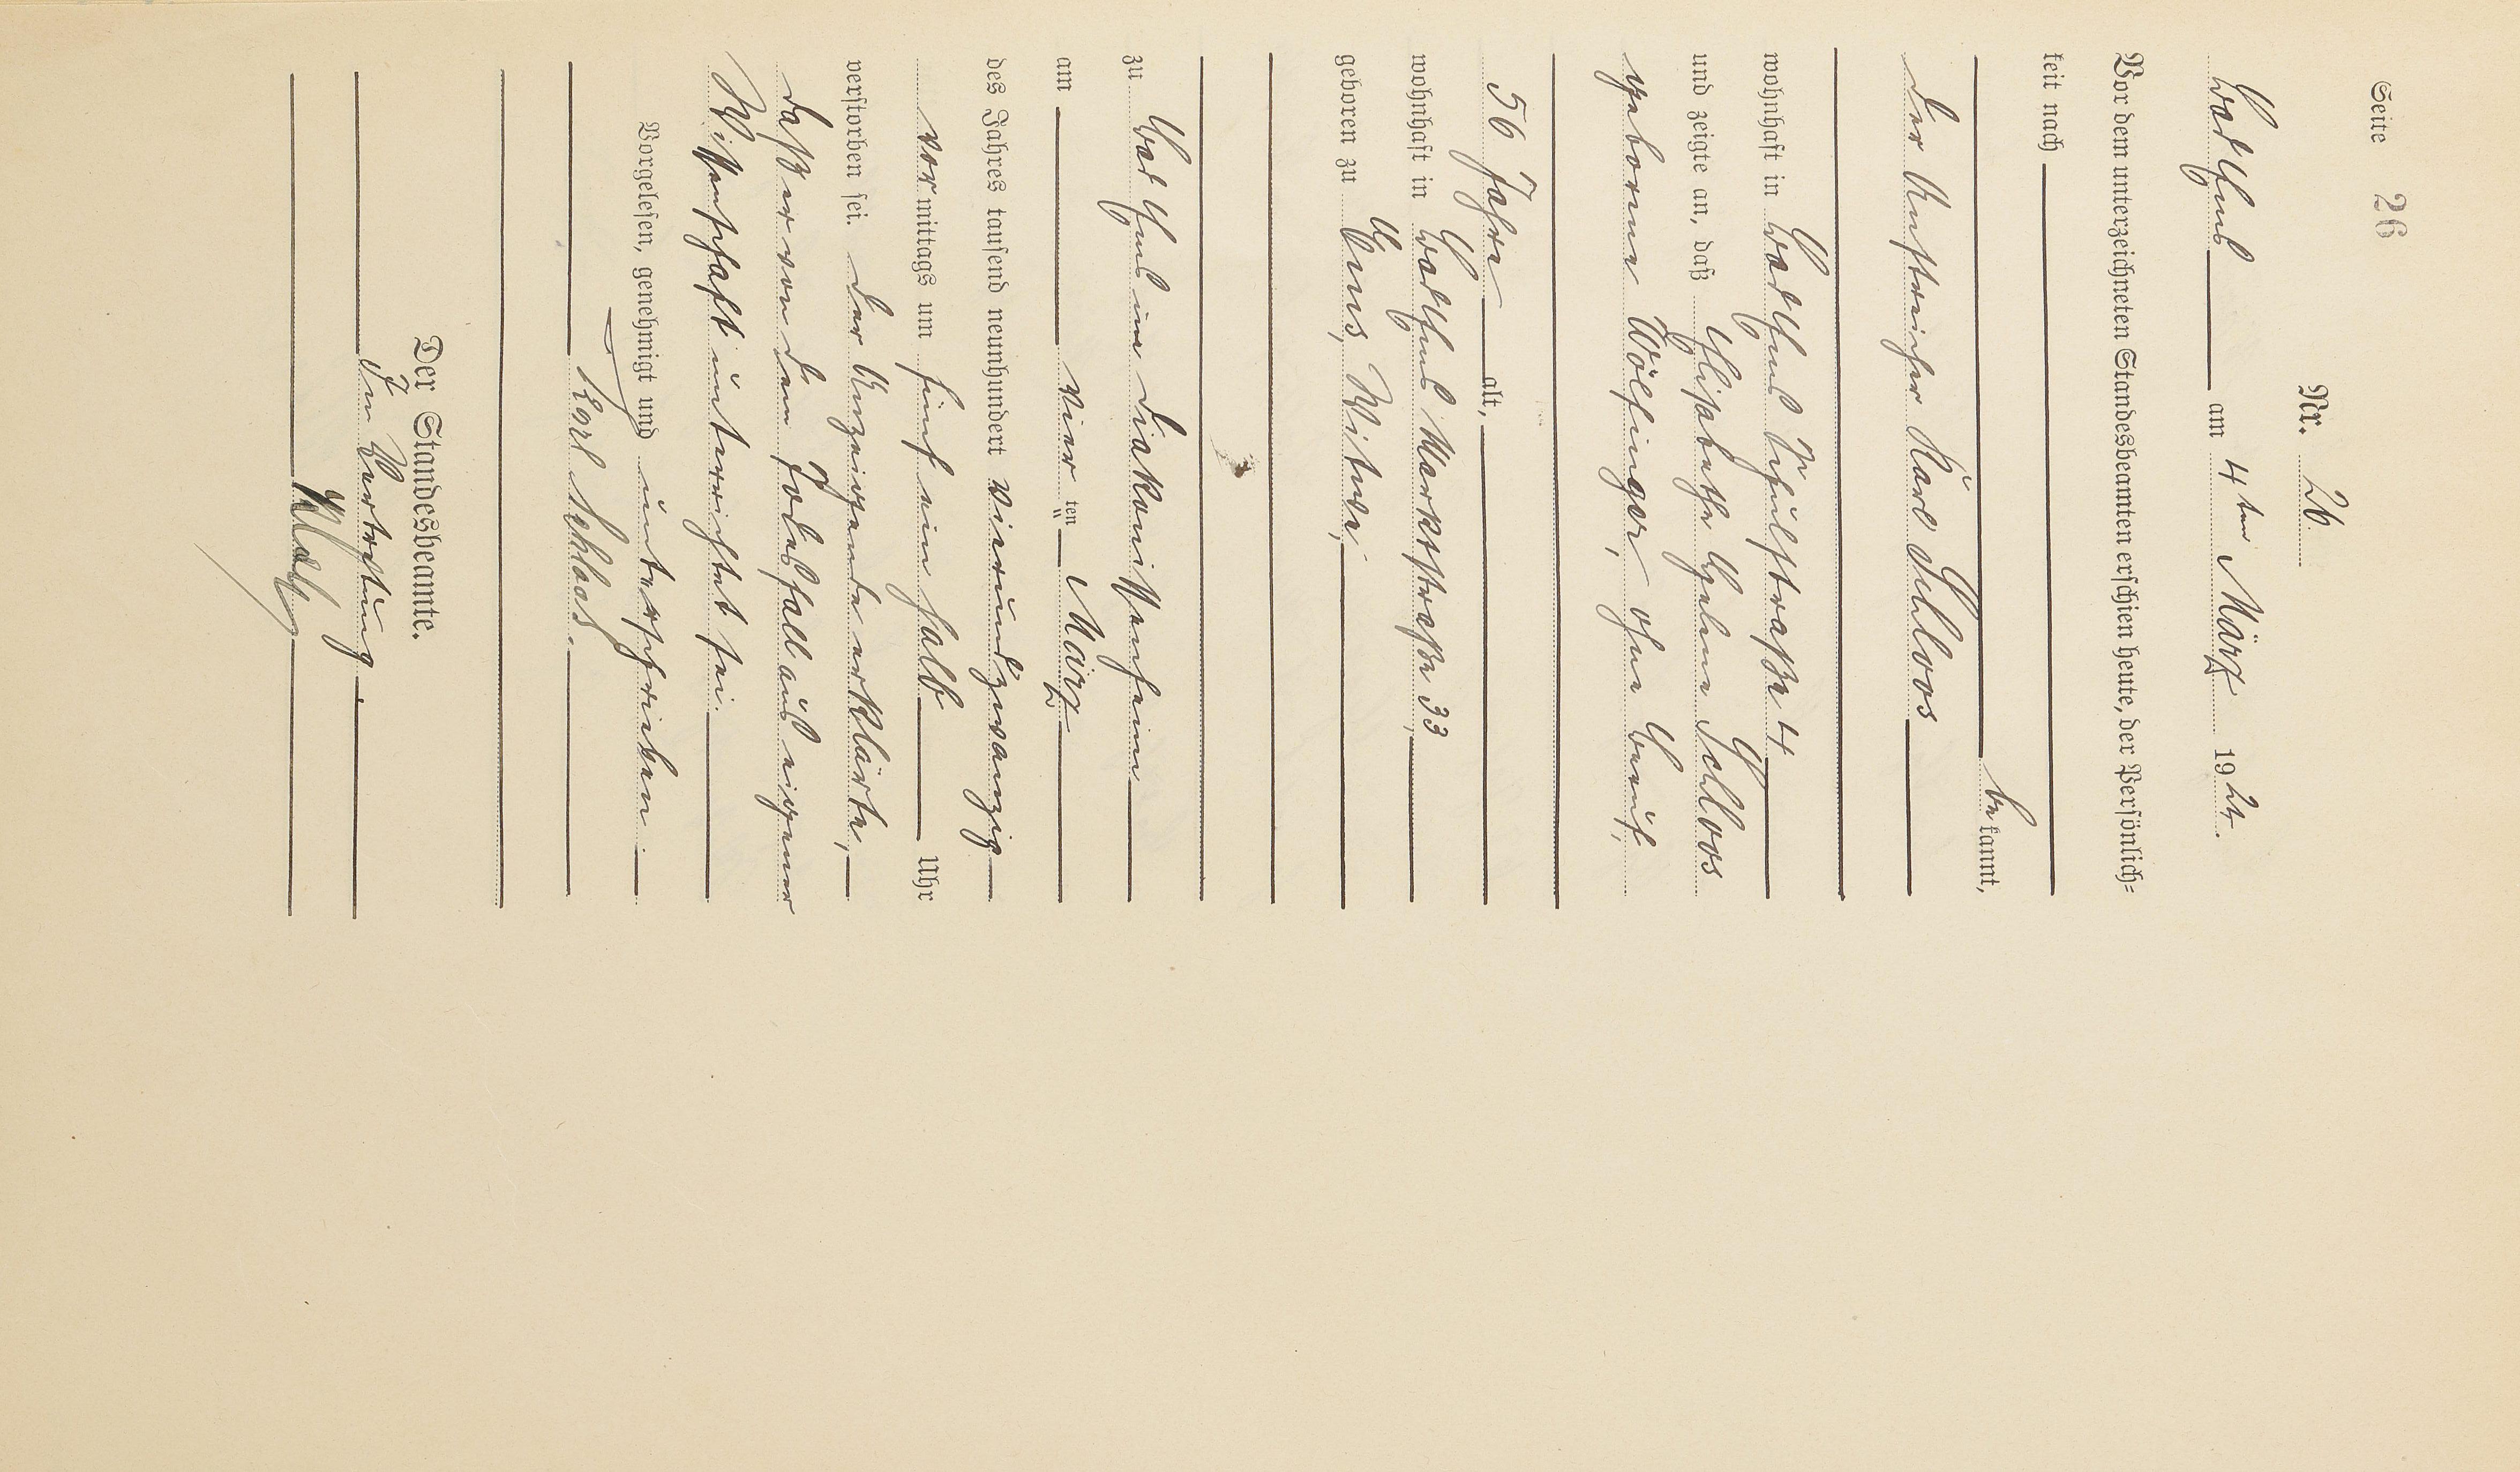 Seite 26
Nr. 26
Bad Ems am 4ten März 1924.
Vor dem unterzeichneten Standesbeamten erschien heute, der Persönlich=
keit nach
bekannt,
der Anstreicher Karl Schloos
wohnhaft in Bad Ems Schulstraße 4
und zeigte an, daß Elisabethe Helene Schloos
geborene Wölfinger, ohne Beruf,
56 Jahre alt,
wohnhaft in Bad Ems Marktstraße 33,
geboren zu Ems, Witwe,
zu Bad Ems im Diakonissenheim
am vier ten März
des Jahres tausend neunhundert vierundzwanzig
vormittags um fünf ein halb Uhr
verstorben sei. Der Anzeigende erklärte,
daß er von dem Todesfall aus eigener
Wissenschaft unterrichtet sei.
Vorgelesen, genehmigt und unterschrieben
Karl Schloos.
Der Standesbeamte.
In Vertretung.